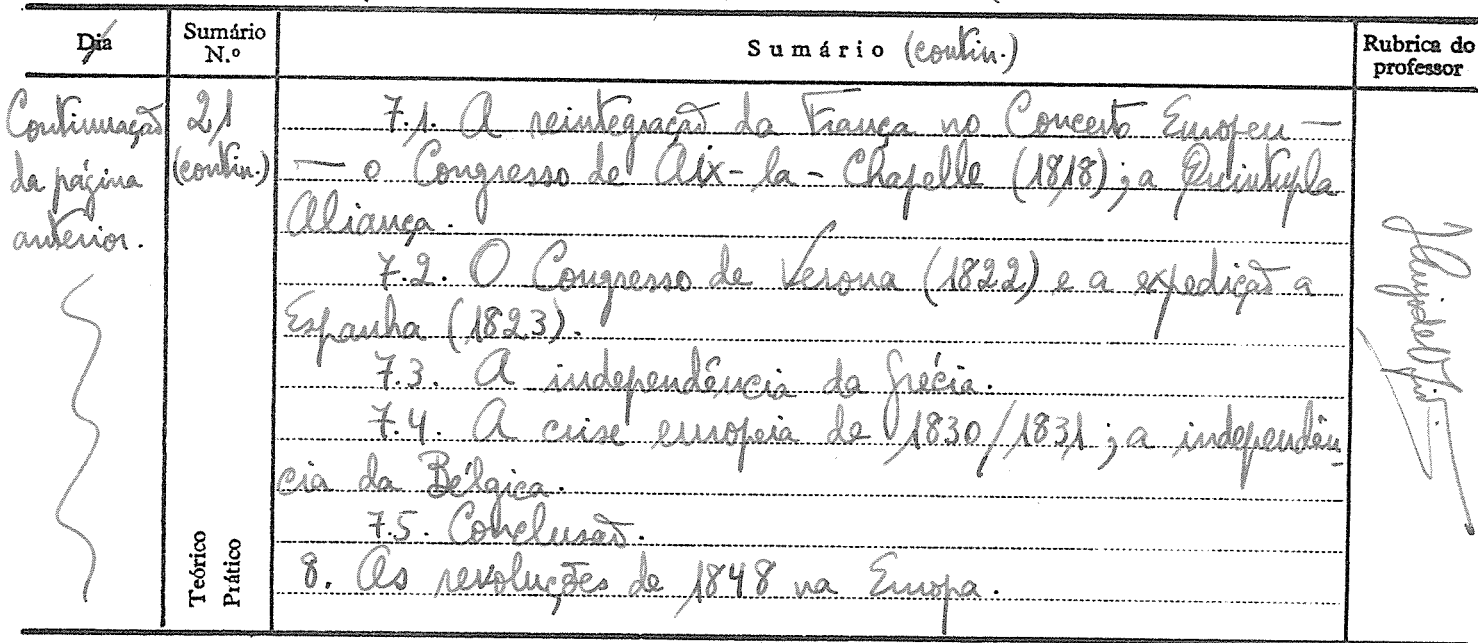 Dia Sumário N.º Sumário (contin.) Rubrica do professor
Continuação da página anterior.
21 (contin.)
7.1. A reintegração da França no Concerto Europeu —
— o Congresso de Aix-la-Chapelle (1818); a Quíntupla
Aliança.
7.2. O Congresso de Verona (1822) e a expedição a
Espanha (1823).
7.3. A independência da Grécia.
7.4. A crise europeia de 1830/1831; a independên
cia da Bélgica.
7.5. Conclusão.
8. As revoluções de 1848 na Europa.
Teórico
Prático